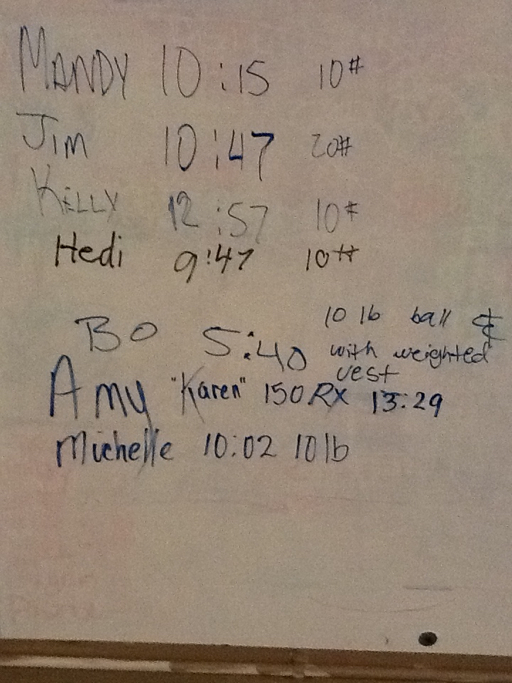 MANDY 10:15 10#
JIM 10:47 20#
KELLY 12:57 10#
Hedi 9:47 10#
BO 5:40 10 lb ball &
with weighted
vest
Amy "Karen" 150 RX 13:29
Michelle 10:02 10 lb